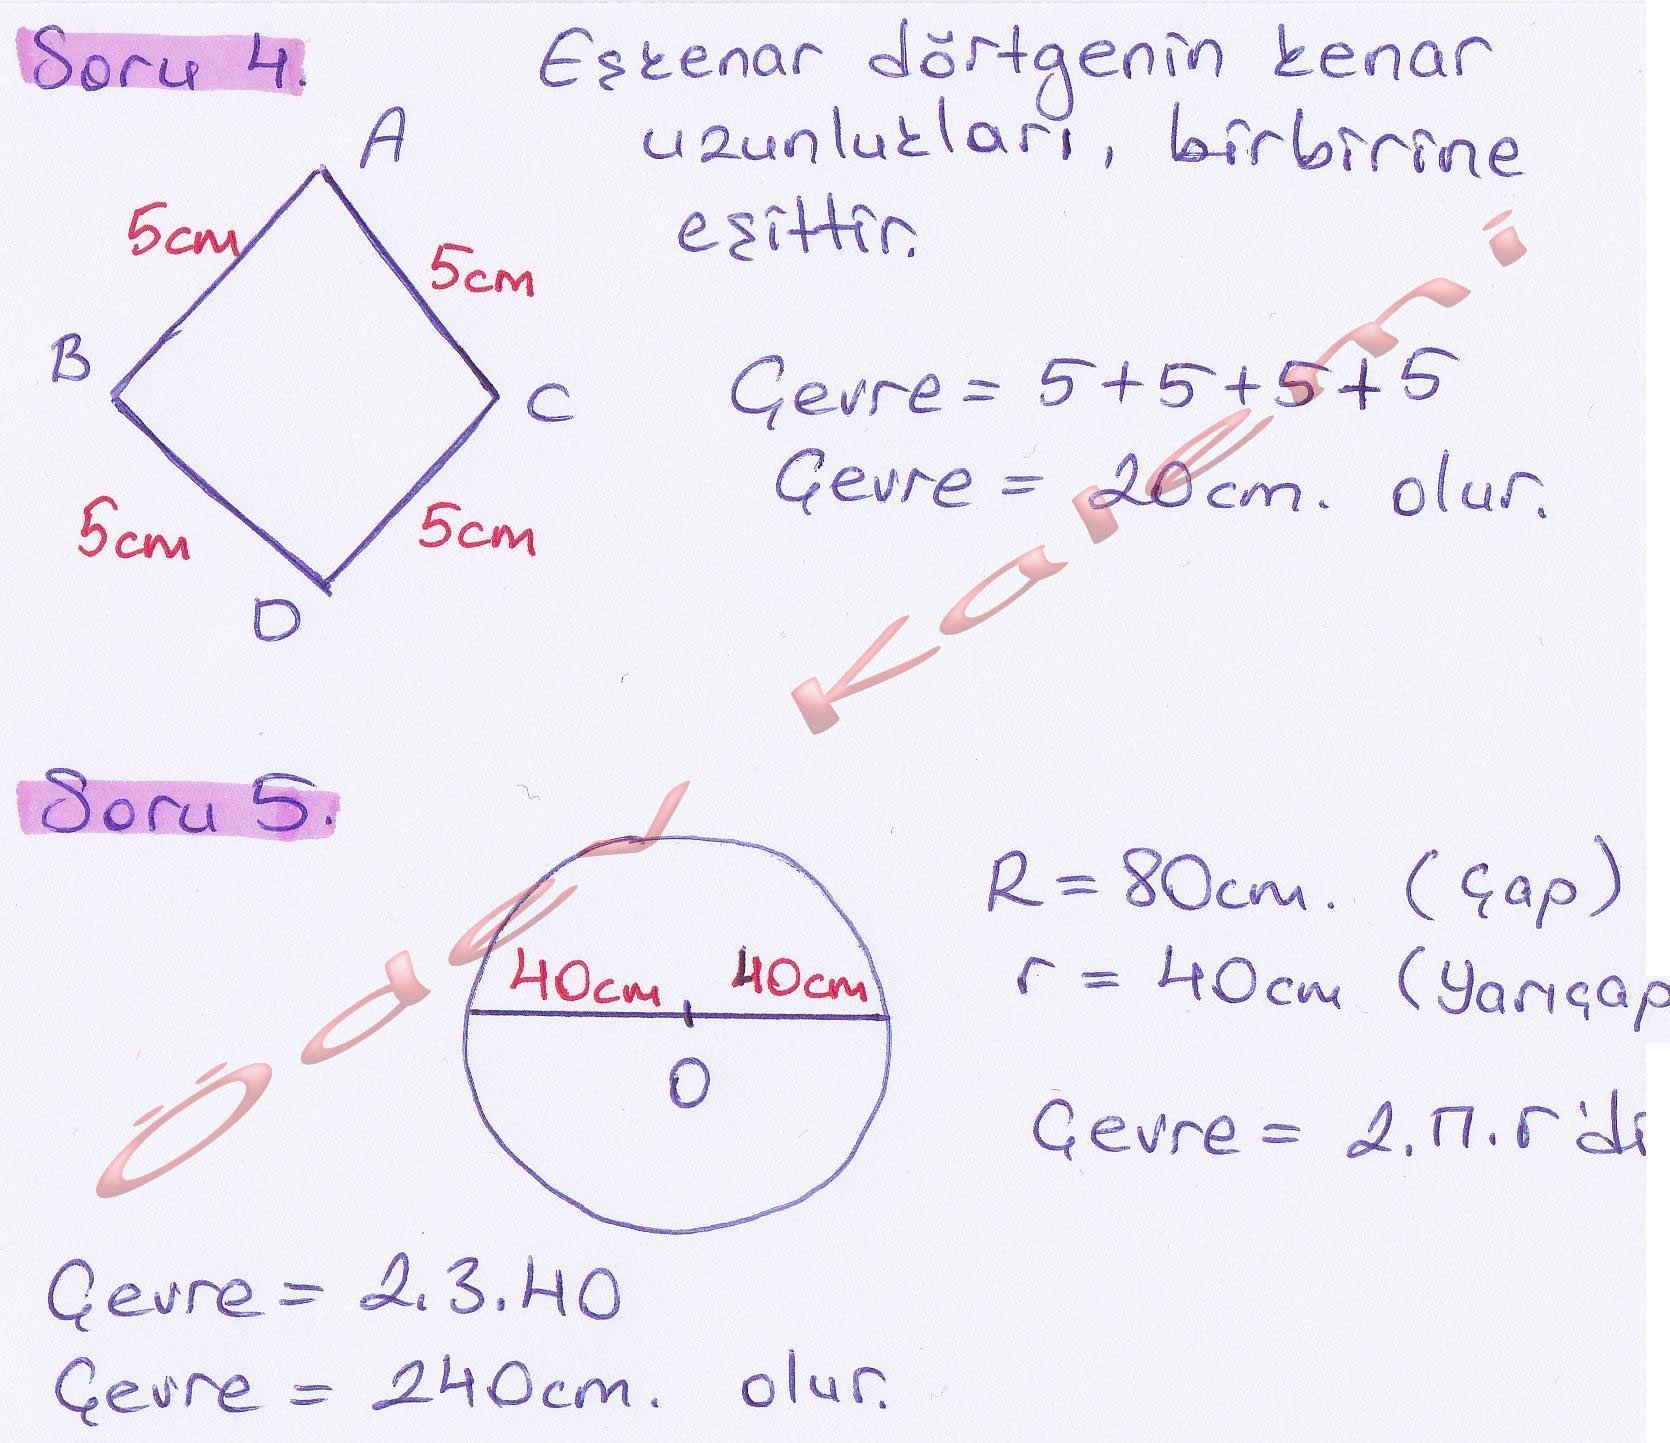 Soru 4.
Eşkenar dörtgenin kenar
uzunlukları, birbirine
eşittir.
A
5cm
5cm
B
C
5cm
5cm
D
Çevre = 5+5+5+5
Çevre = 20cm. olur.
Ödev Kaynağı
Soru 5.
40cm 40cm
O
R = 80cm. (Çap)
r = 40cm (Yarıçap
Çevre = 2.π.r'di
Çevre = 2.3.40
Çevre = 240cm. olur.